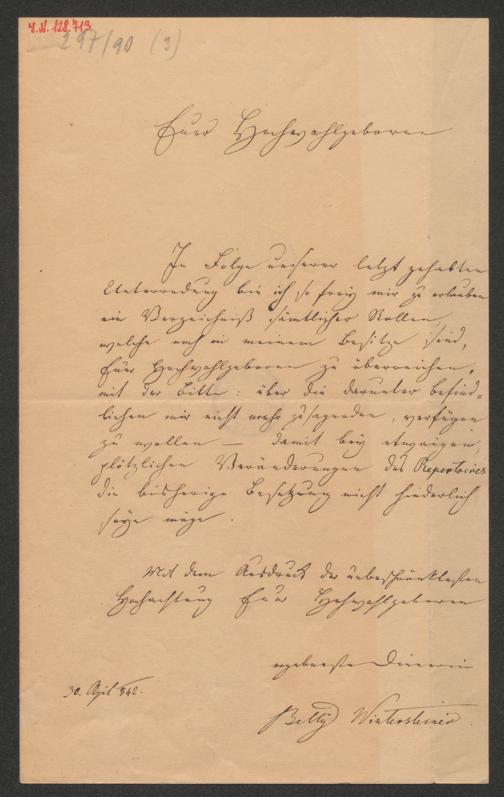 I.N. 128.713
297/90 (3)
Euer Hochwohlgeboren
In Folge unserer letzt gehabten
Unterredung bin ich so frey mir zu erlauben
ein Verzeichniß sämtlicher Rollen,
welche noch in meinem Besitze sind,
Euer Hochwohlgeboren zu überreichen,
mit der Bitte: über die darunter befind=
lichen mir nicht mehr zusagenden, verfügen
zu wollen — damit bey etwaigen,
plötzlichen Veränderungen des Repertoires
die bisherige Besetzung nicht hinderlich
seyn möge.
Mit dem Ausdruck der unbeschränktesten
Hochachtung Euer Hochwohlgeboren
ergebenste Dienerin
30. April 842.
Betty Wintersteiner